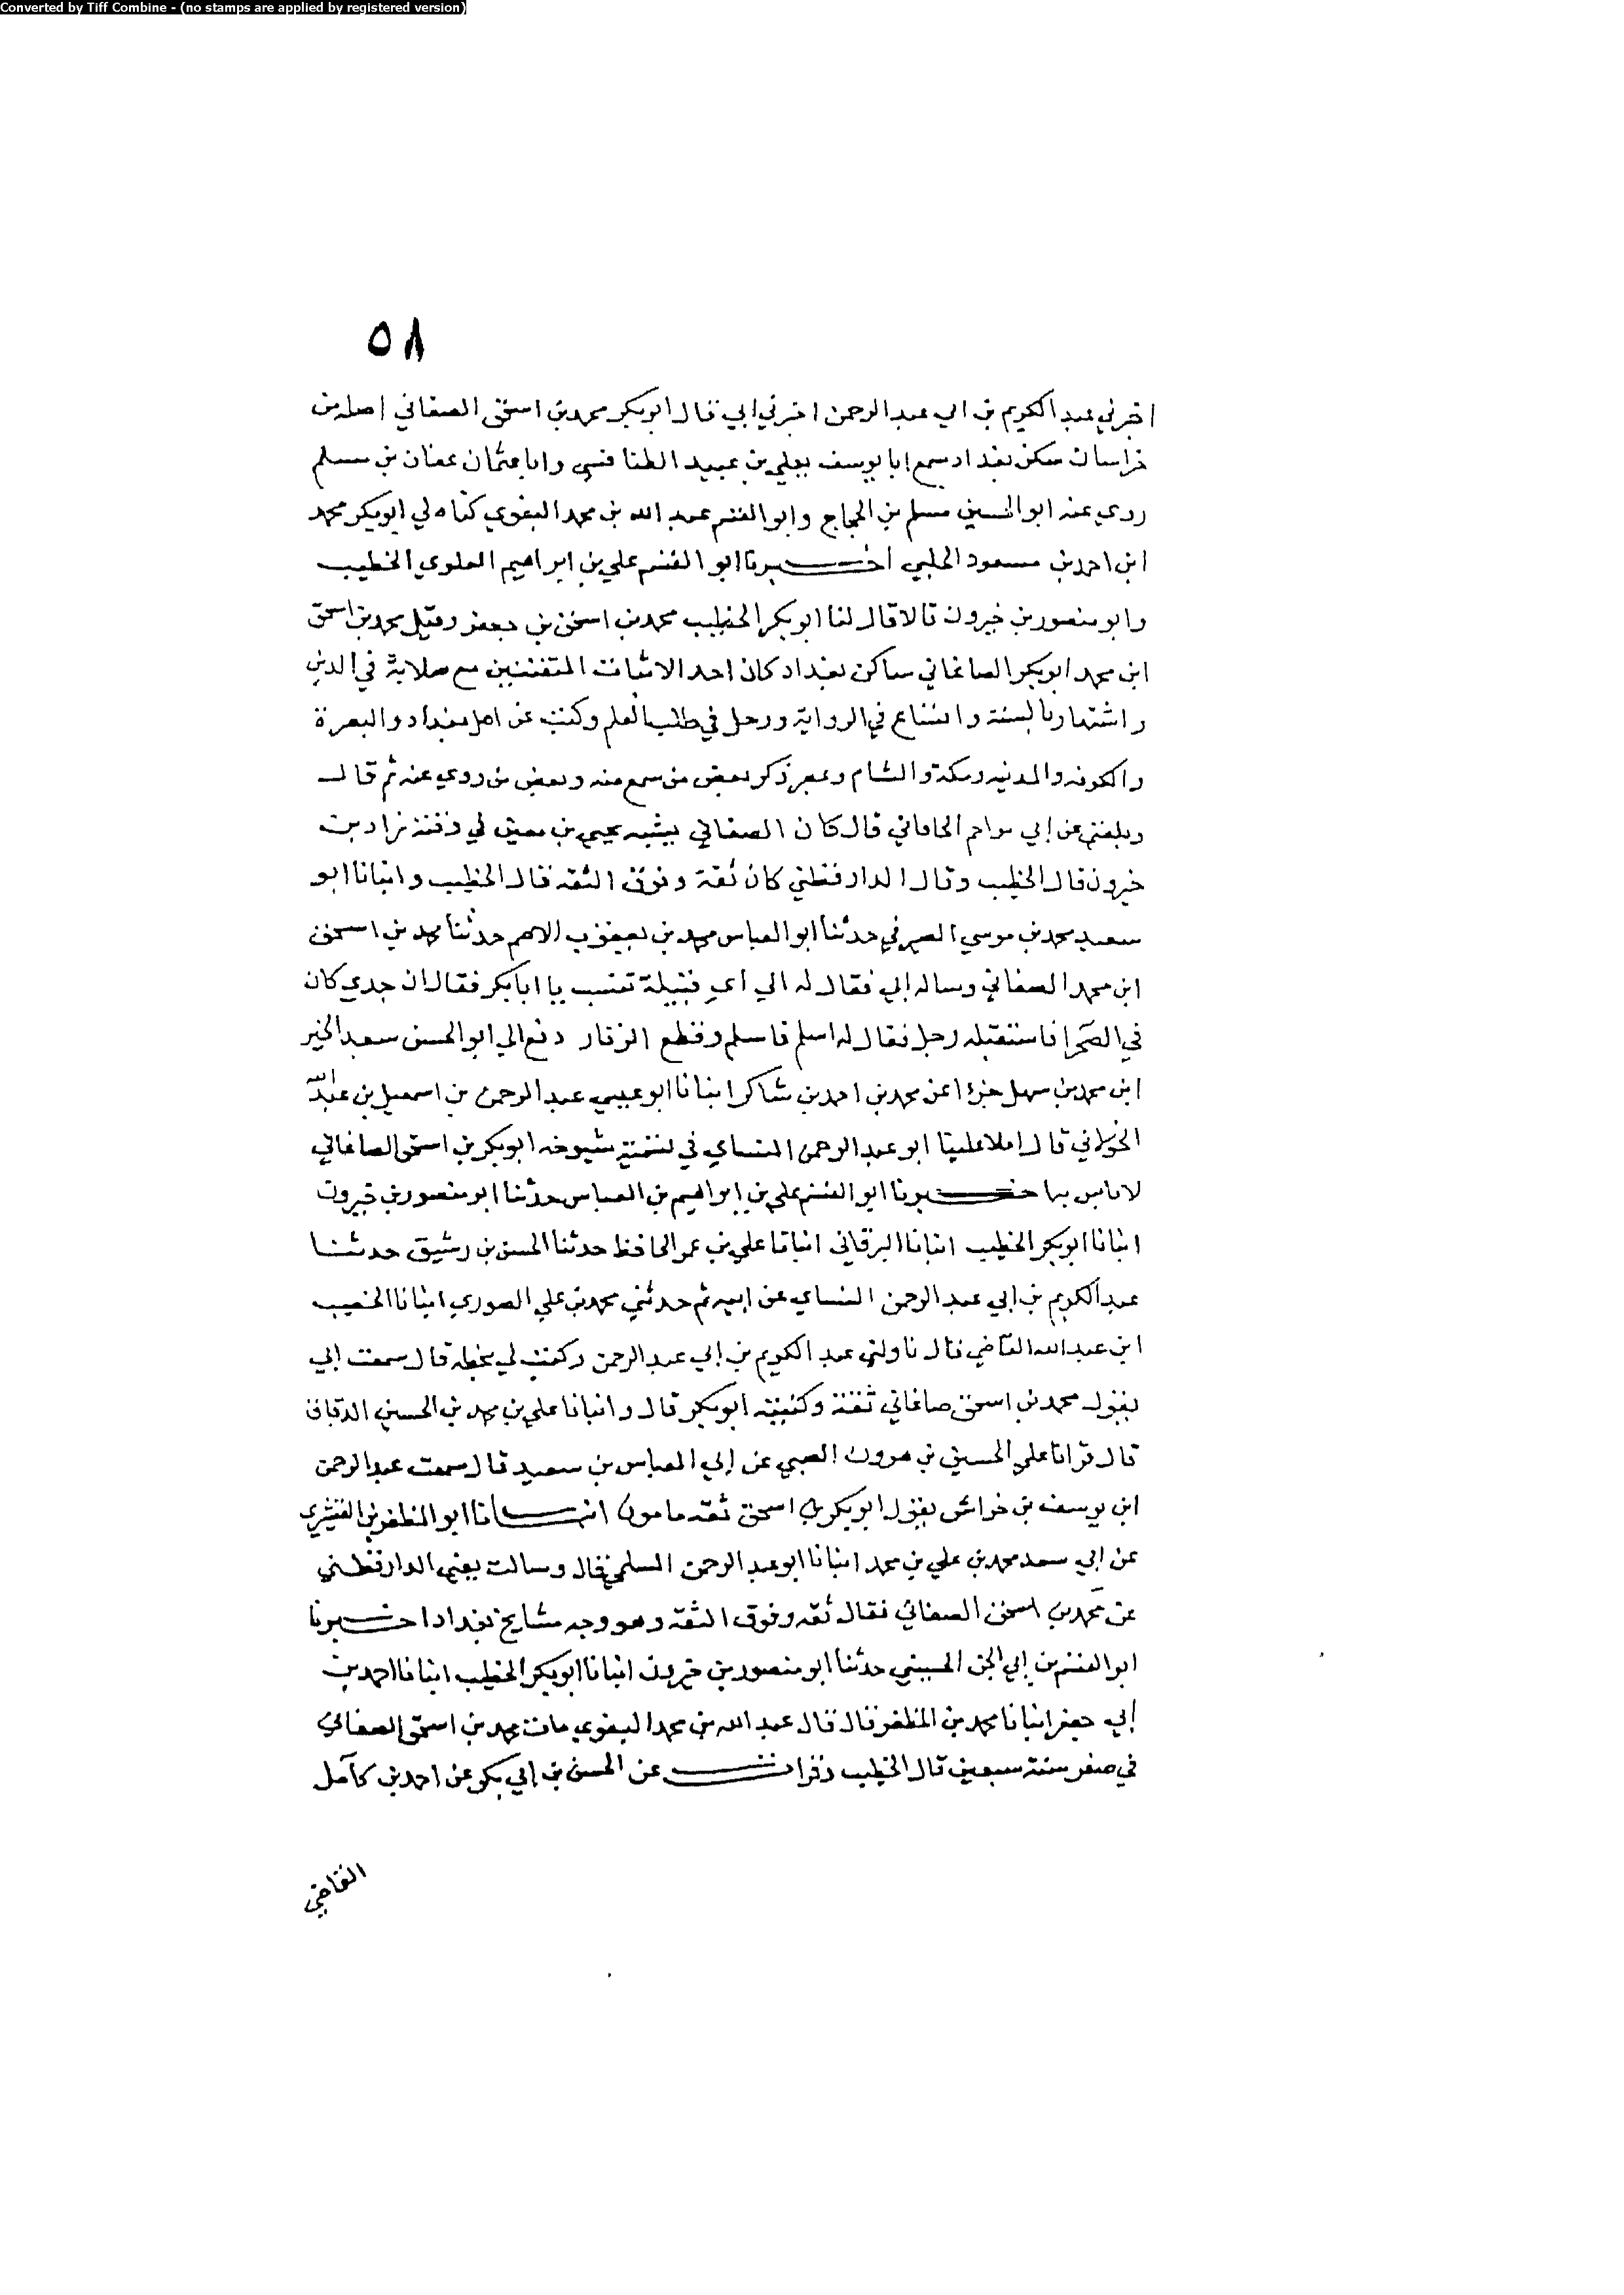 Converted by Tiff Combine - (no stamps are applied by registered version)
٥٨
اخبرني عبد الكريم بن ابي عبد الرحمن اخبرني ابي قال ابوبكر محمد بن اسحق الصغاني اصله من
خراسان سكن بغداد سمع ابا يوسف يعلي بن عبيد الطنافسي وابا عثمان عفان بن مسلم
روي عنه ابو الحسين مسلم بن الحجاج وابو القسم عبد الله بن محمد البغوي كناه لي ابوبكر محمد
ابن احمد بن مسعود الحلبي اخبرنا ابو القسم علي بن ابراهيم العلوي الخطيب
وابو منصور بن خيرون قالا قال لنا ابوبكر الخطيب محمد بن اسحق بن جعفر وقيل محمد بن اسحق
ابن محمد ابوبكر الصاغاني ساكن بغداد كان احد الاثبات المتقنين مع صلابة في الدين
واشتهار بالسنة واتساع في الرواية ورحل في طلب العلم وكتب عن اهل بغداد والبصرة
والكوفه والمدينه ومكة والشام ومصر ذكر بعض من سمع منه وبعض من روي عنه ثم قال
وبلغني عن ابي مزاحم الخاقاني قال كان الصغاني يشبه يحيي بن معين في وقته زاد بن
خيرون قال الخطيب وقال الدارقطني كان ثقة وفوق الثقه قال الخطيب وانبانا ابو
سعيد محمد بن موسي الصيرفي حدثنا ابو العباس محمد بن يعقوب الاصم حدثنا محمد بن اسحق
ابن محمد الصغاني وساله ابي فقال له الي اي قبيلة تنتسب يا ابا بكر فقال ان جدي كان
في الصحرا فاستقبله رجل فقال له اسلم فاسلم وقطع الزنار دفع الي ابو الحسن سعد الخير
ابن محمد بن سهل جزءا عن محمد بن احمد بن شاكر انبانا ابو عيسي عبد الرحمن بن اسمعيل بن عبد الله
الخولاني قال املا علينا ابو عبد الرحمن النساي في تسمية شيوخه ابوبكر بن اسحق الصاغاني
لاباس به اخبرنا ابو القسم علي بن ابراهيم بن العباس حدثنا ابو منصور بن خيرون
انبانا ابوبكر الخطيب انبانا البرقاني انبانا علي بن عمر الحافظ حدثنا الحسن بن رشيق حدثنا
عبد الكريم بن ابي عبد الرحمن النساي عن ابيه ثم حدثني محمد بن علي الصوري انبانا الخصيب
ابن عبد الله القاضي قال ناولني عبد الكريم بن ابي عبد الرحمن وكتب لي بخطه قال سمعت ابي
يقول محمد بن اسحق صاغاني ثقة وكنيته ابوبكر قال وانبانا علي بن محمد بن الحسين الدقاق
قال قرانا علي الحسين بن هرون الضبي عن ابي العباس بن سعيد قال سمعت عبد الرحمن
ابن يوسف بن خراش يقول ابوبكر بن اسحق ثقه مامون انبانا ابو المظفر بن القشيري
عن ابي سعد محمد بن علي بن محمد انبانا ابو عبد الرحمن السلمي قال وسالت يعني الدارقطني
عن محمد بن اسحق الصغاني فقال ثقه وفوق الثقه وهو وجه مشايخ بغداد اخبرنا
ابو القسم بن ابي الجن الحسيني حدثنا ابو منصور بن خيرون انبانا ابوبكر الخطيب انبانا احمد بن
ابي جعفر انبانا محمد بن المظفر قال قال عبد الله بن محمد البغوي مات محمد بن اسحق الصغاني
في صفر سنة سبعين قال الخطيب وقرات عن الحسن بن ابي بكر عن احمد بن كامل
القاضي